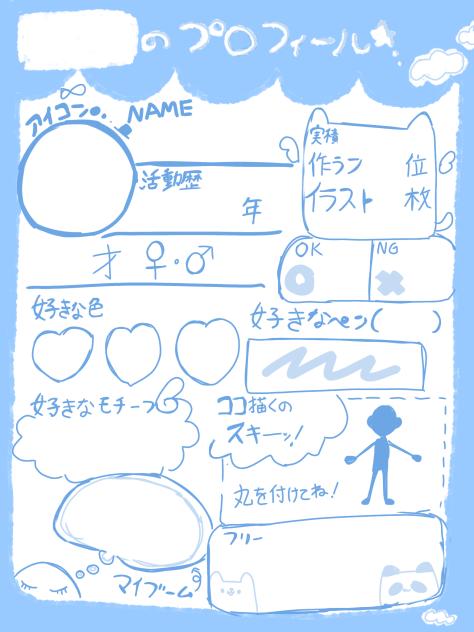 のプロフィール
アイコン
NAME
活動歴
年
才 ♀・♂
実積
作ラン 位
イラスト 枚
OK
NG
好きな色
好きなペン( )
好きなモチーフ
ココ描くの
スキーッ!
丸を付けてね!
マイブーム
フリー